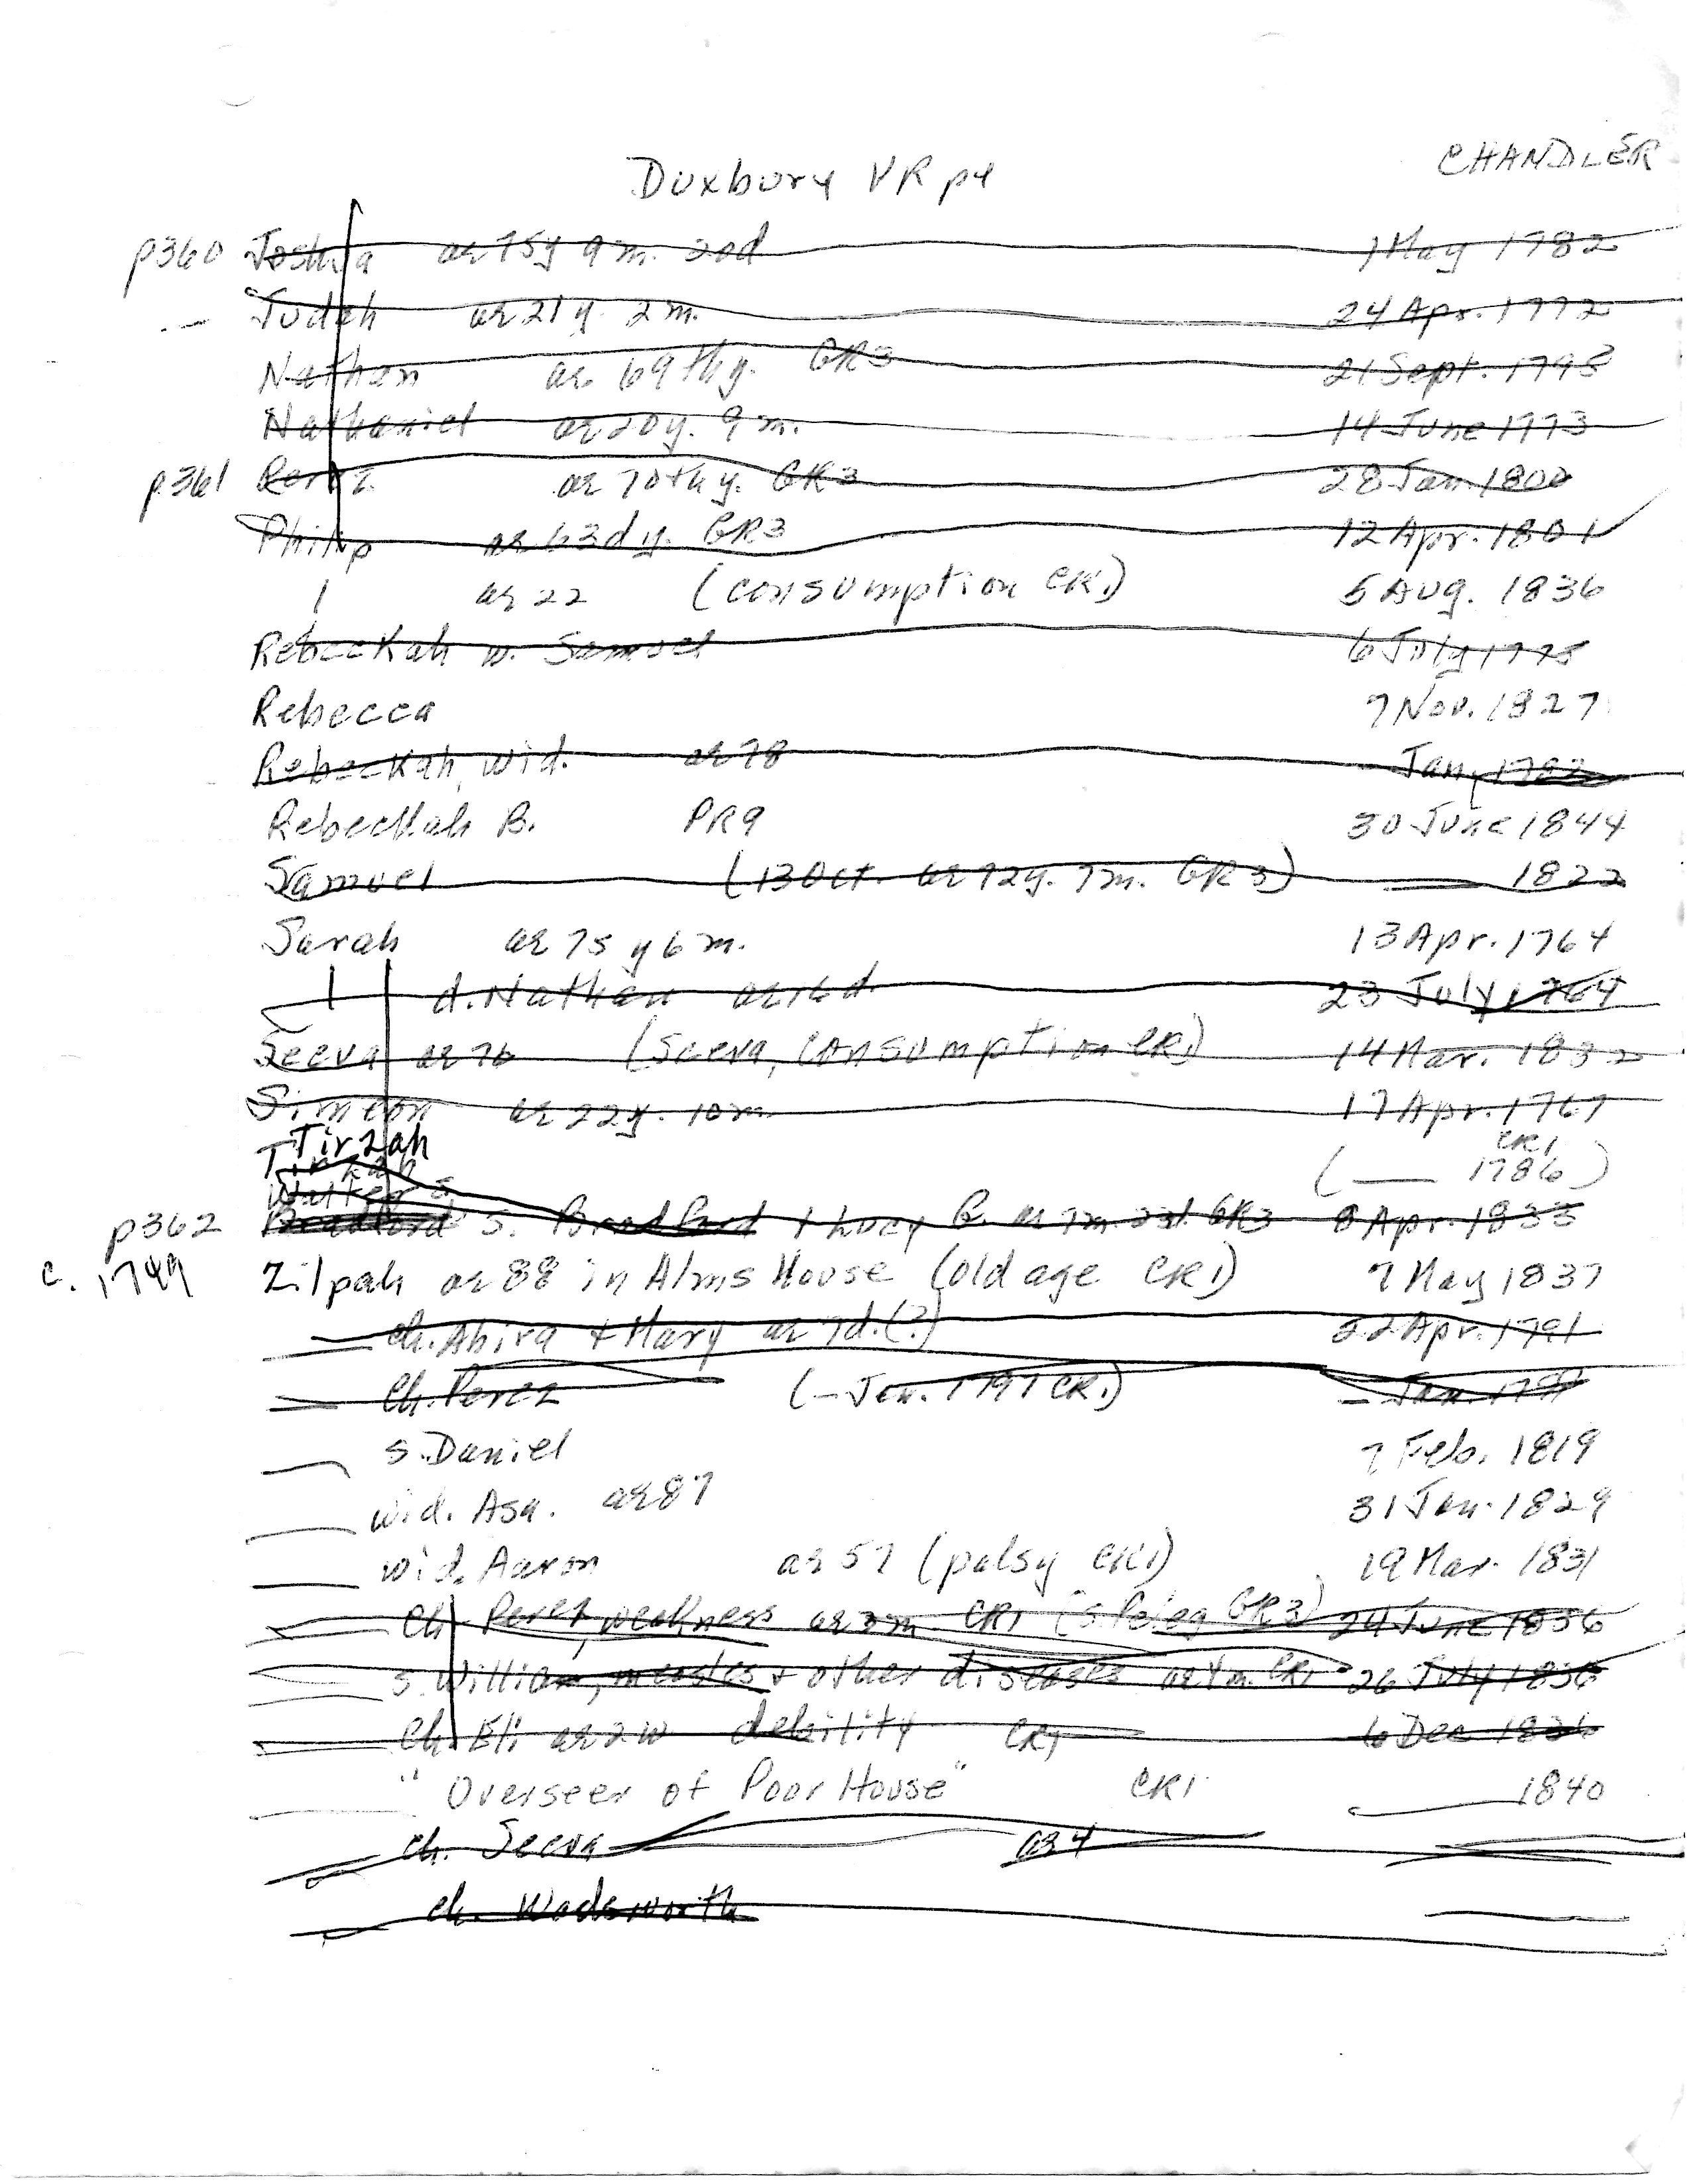 CHANDLER
Duxbury VR p4
p360 Joshua ae 75y 9m. 20d 1 May 1782
Judah ae 21y. 2m. 24 Apr. 1772
Nathan ae 69thy. GR3 21 Sept. 1798
Nathaniel ae 20y. 9m. 14 June 1773
p.361 Perez ae 70thy. GR3 28 Jan. 1800
Philip ae 63dy. GR3 12 Apr. 1801
ae 22 (consumption CR1) 5 Aug. 1836
Rebeckah w. Samuel 6 July 1775
Rebecca 7 Nov. 1827
Rebeckah, wid. ae 78 Jan.
Rebeckah B. PR9 30 June 1844
Samuel (13 Oct. ae 72y. 7m. GR3) — 1822
Sarah ae 75 y 6m. 13 Apr. 1764
d. Nathan ae 16d. 23 July 1764
Seeva ae 76 (Seeva, consumption CR1) 14 Mar. 1832
Simeon ae 22y. 10m. 17 Apr. 1767
Tirzah CR1
Tirzah ( — 1786 )
Walter S.
p362 Bradford S. Bradford & Lucy G. ae 7m. 23d. GR3 8 Apr. 1833
c. 1749 Zilpah ae 88 in Alms House (old age CR1) 7 May 1837
— ch. Ahira & Mary ae 7d.(?) 22 Apr. 1791
— Ch. Perez (— Jan. 1791 CR1) — Jan.
— s. Daniel 7 Feb. 1819
— wid. Asa. ae 87 31 Jan. 1829
— wid. Aaron ae 57 (palsy CR1) 19 Mar. 1831
— Ch. Perez, weakness ae 3m CR1 (s. Peleg GR3) 24 June 1836
— s. William, measles & other diseases ae 4m. CR1 26 July 1836
— Ch. Eli ae 2w debility CR1 6 Dec 1836
— "Overseer of Poor House" CR1 — 1840
— ch. Seeva ae 4 —
— ch. Wadsworth —